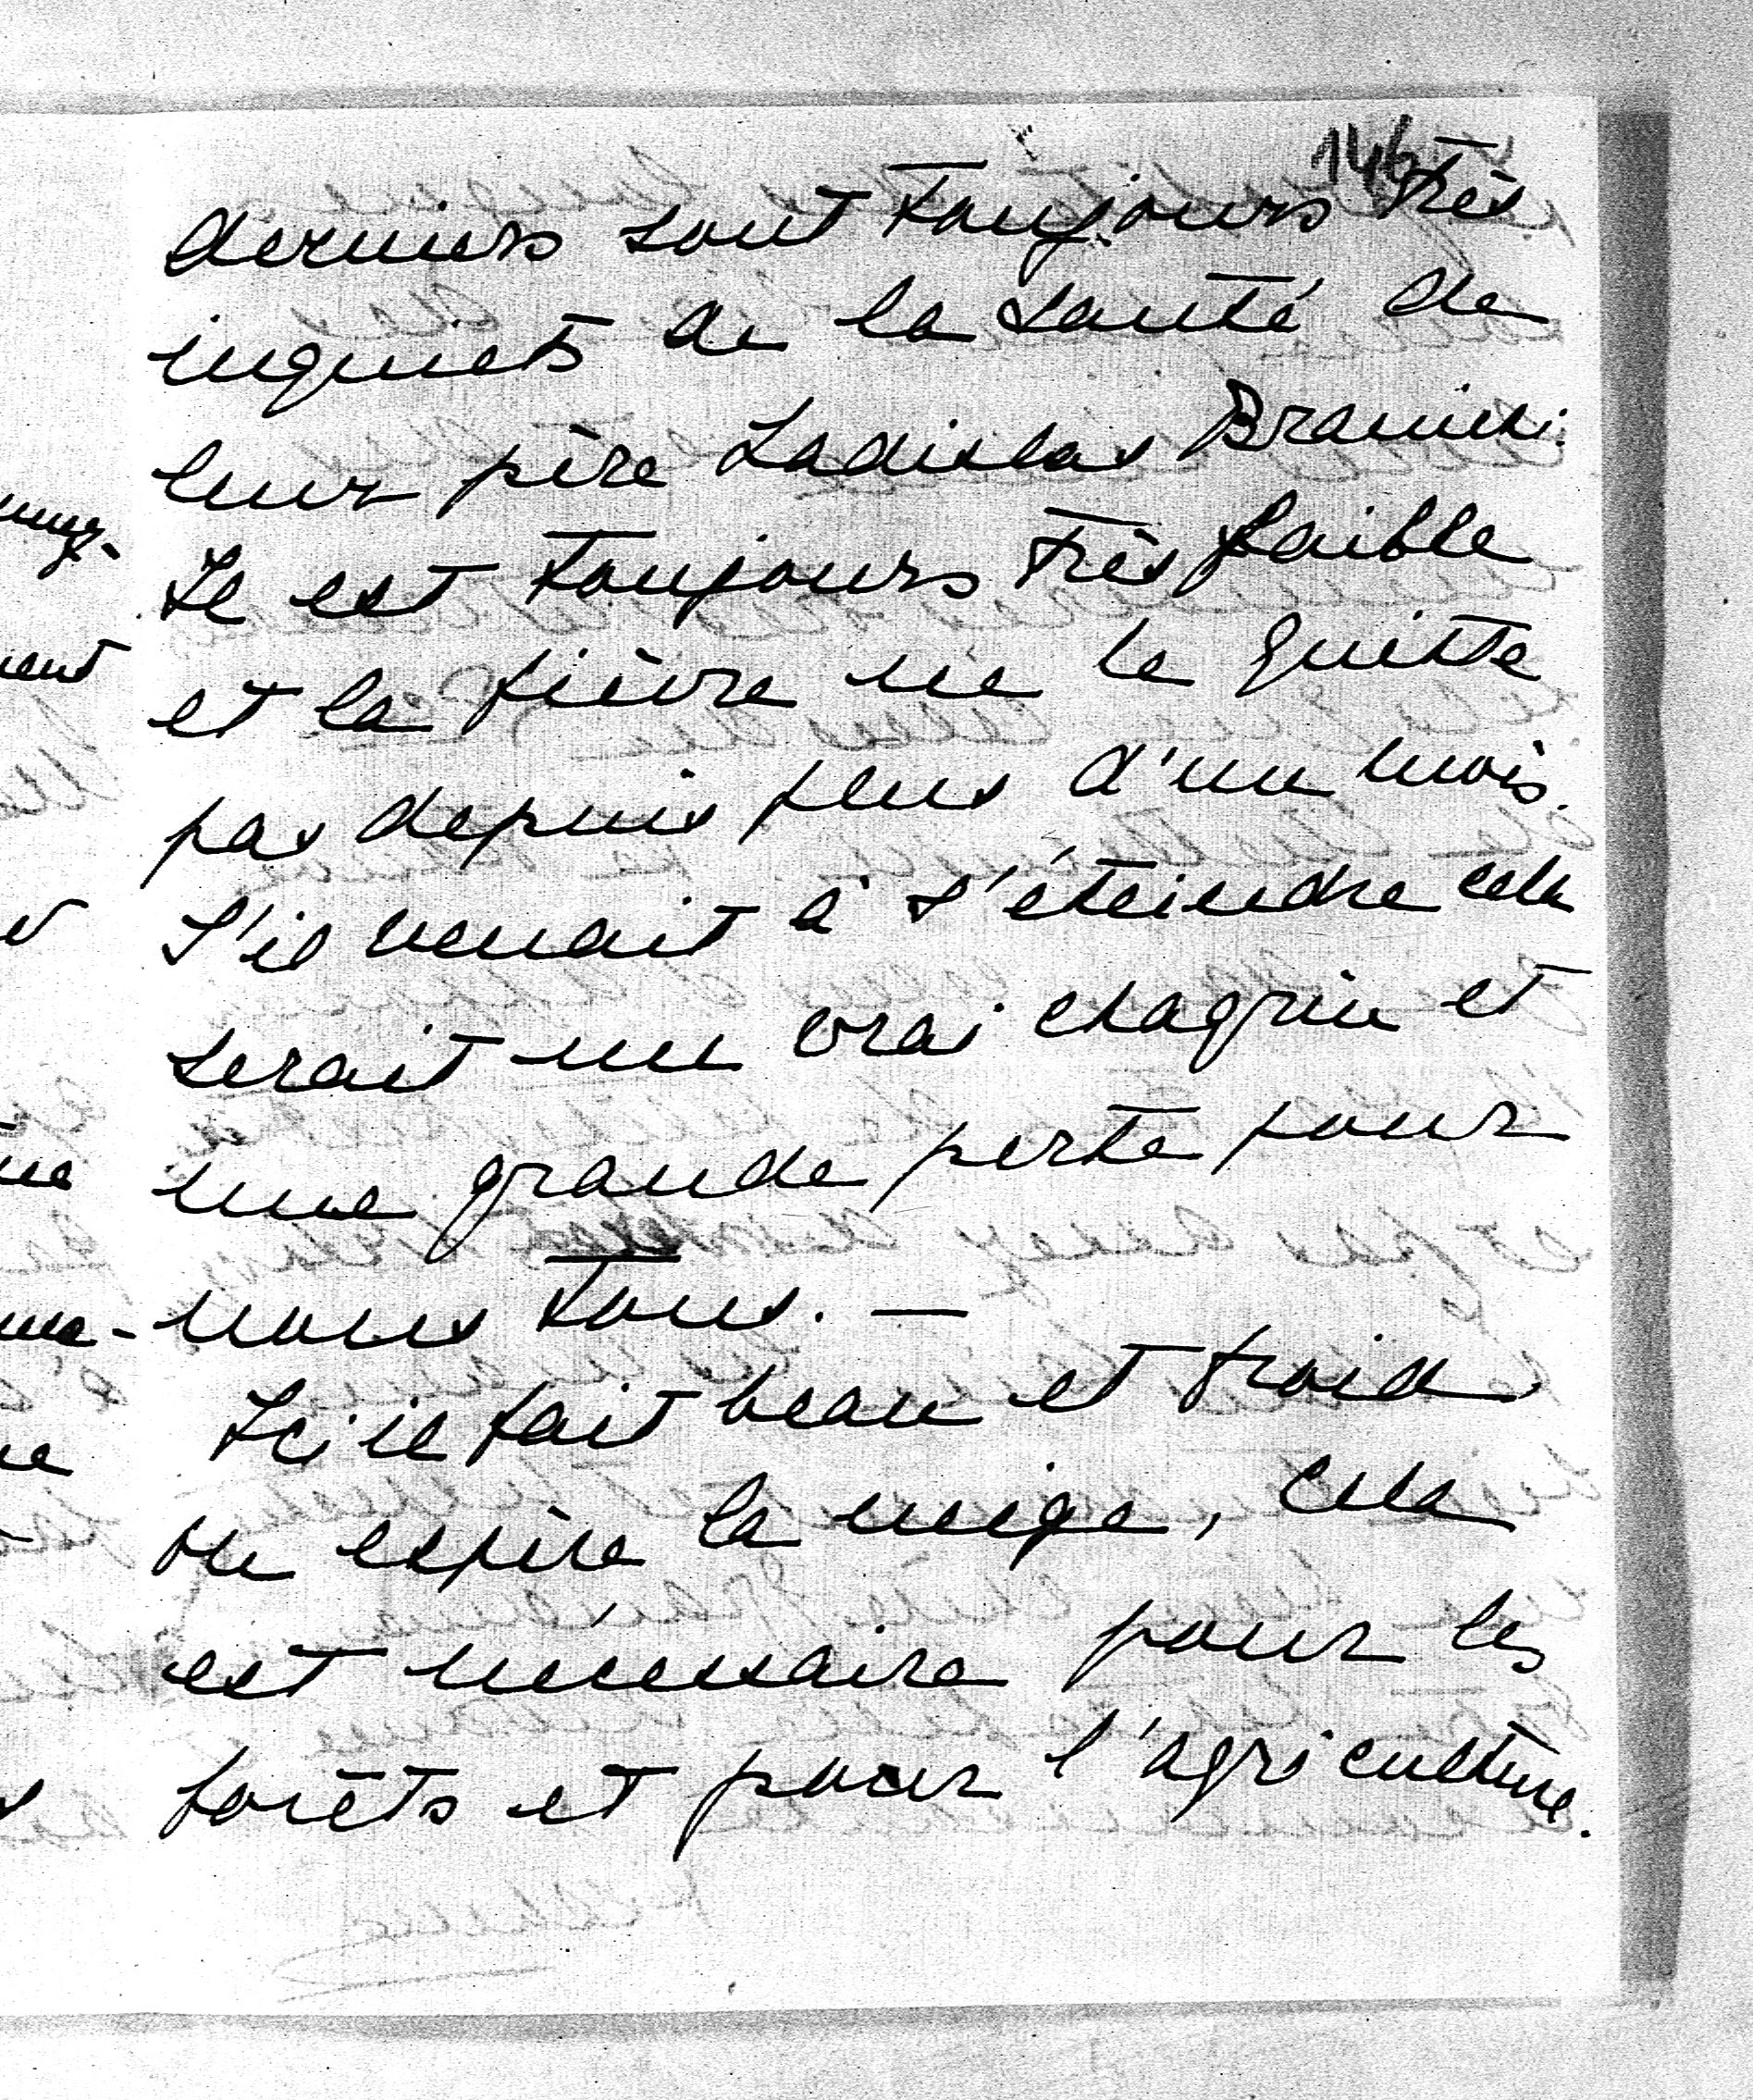 146
derniers sont toujours très
inquiets de la santé de
leur père Ladislas Branicki.
Il est toujours très faible
et la fièvre ne le quitte
pas depuis plus d'un mois.
S'il venait à s'éteindre cela
serait un vrai chagrin et
une grande perte pour
nous tous. —
Ici il fait beau et froid
on espère la neige, cela
est nécessaire pour les
forêts et pour l'agriculture.